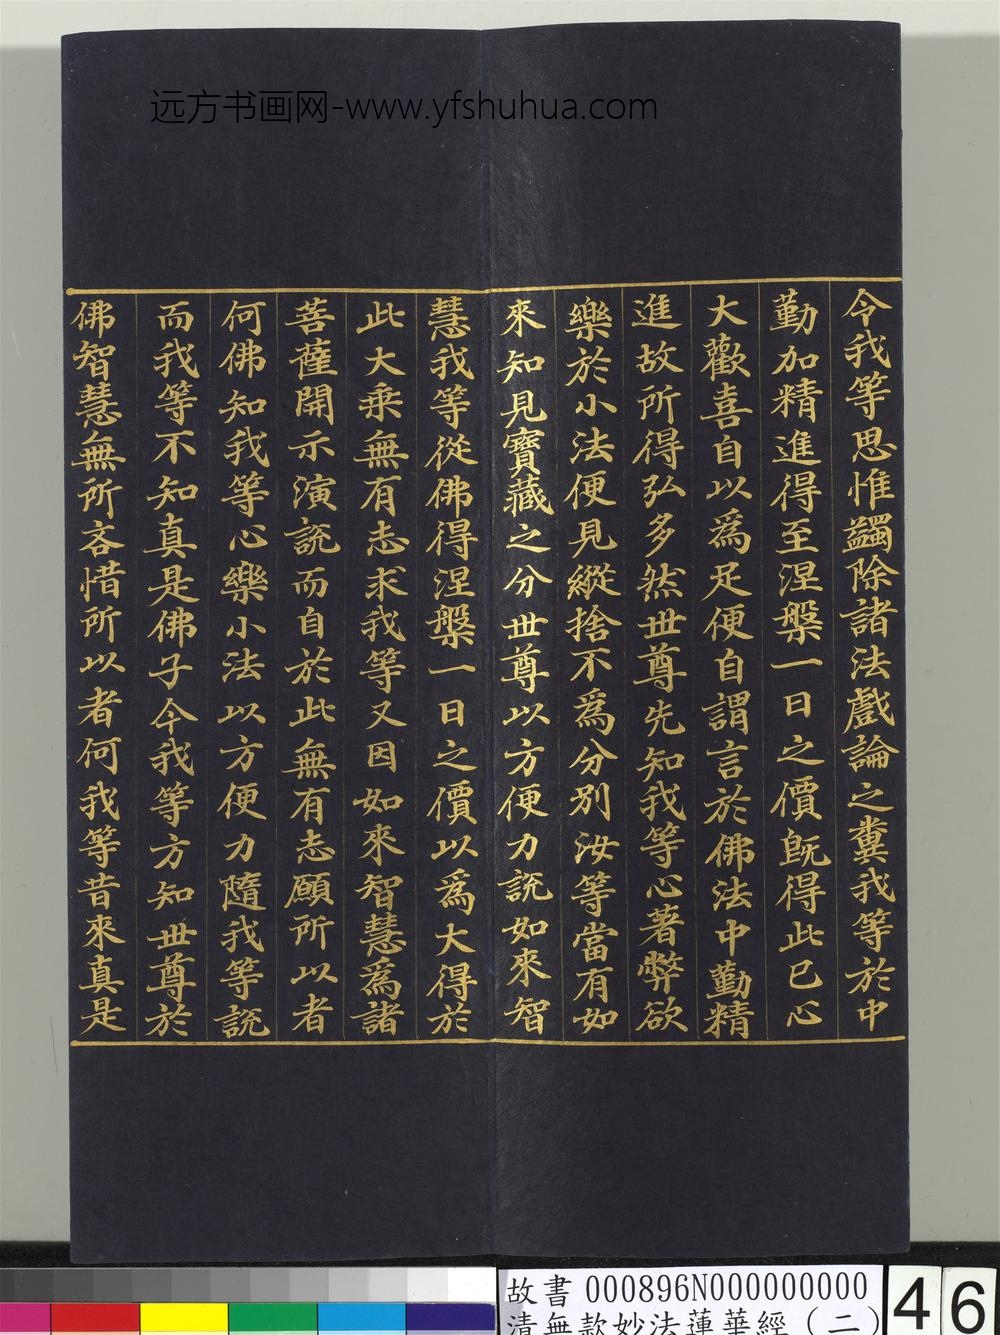 远方书画网-www.yfshuhua.com
令我等思惟蠲除諸法戲論之糞我等於中
勤加精進得至涅槃一日之價既得此已心
大歡喜自以為足便自謂言於佛法中勤精
進故所得弘多然世尊先知我等心著弊欲
樂於小法便見縱捨不為分別汝等當有如
來知見寶藏之分世尊以方便力說如來智
慧我等從佛得涅槃一日之價以為大得於
此大乘無有志求我等又因如來智慧為諸
菩薩開示演說而自於此無有志願所以者
何佛知我等心樂小法以方便力隨我等說
而我等不知真是佛子今我等方知世尊於
佛智慧無所吝惜所以者何我等昔來真是
故書 000896N000000000
清無款妙法蓮華經（二）
46